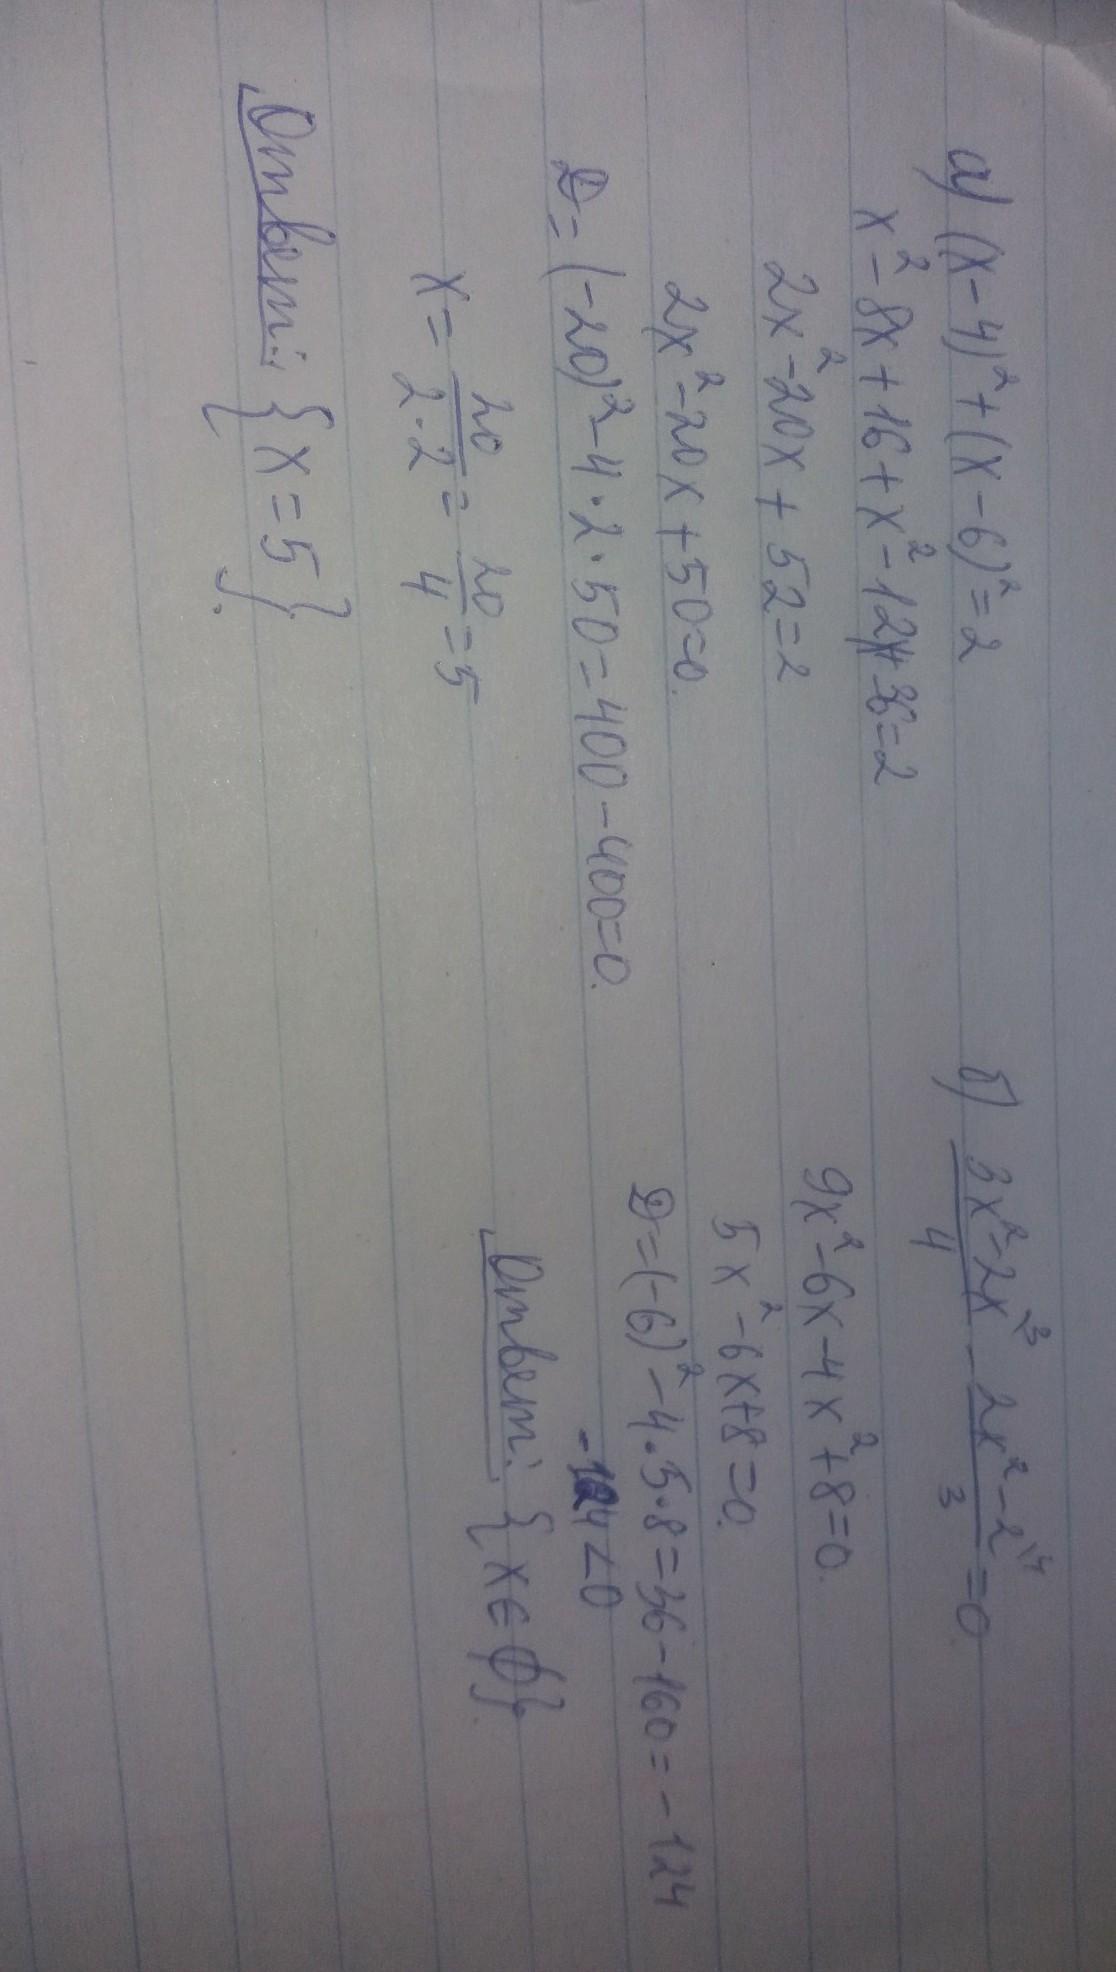 а) (x-4)²+(x-6)²=2
x²-8x+16+x²-12x+36=2
2x²-20x+52=2
2x²-20x+50=0.
D=(-20)²-4·2·50=400-400=0.
x=20/2·2=20/4=5
Ответ: {x=5}.
б) 3x²-2x\³/4 - 2x²-2\⁴/3=0.
9x²-6x-4x²+8=0.
5x²-6x+8=0.
D=(-6)²-4·5·8=36-160=-124
-124<0
Ответ: {x∈∅}.